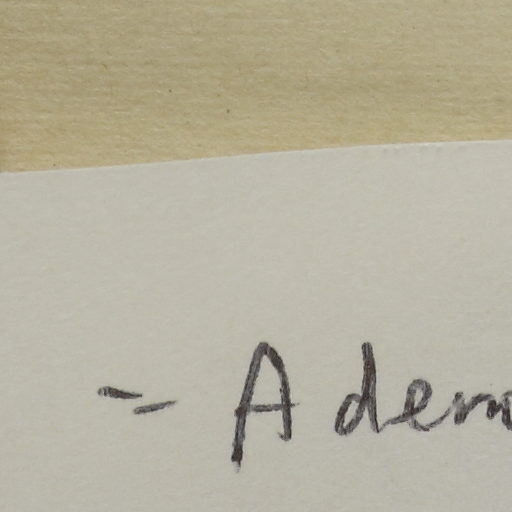 - A dem